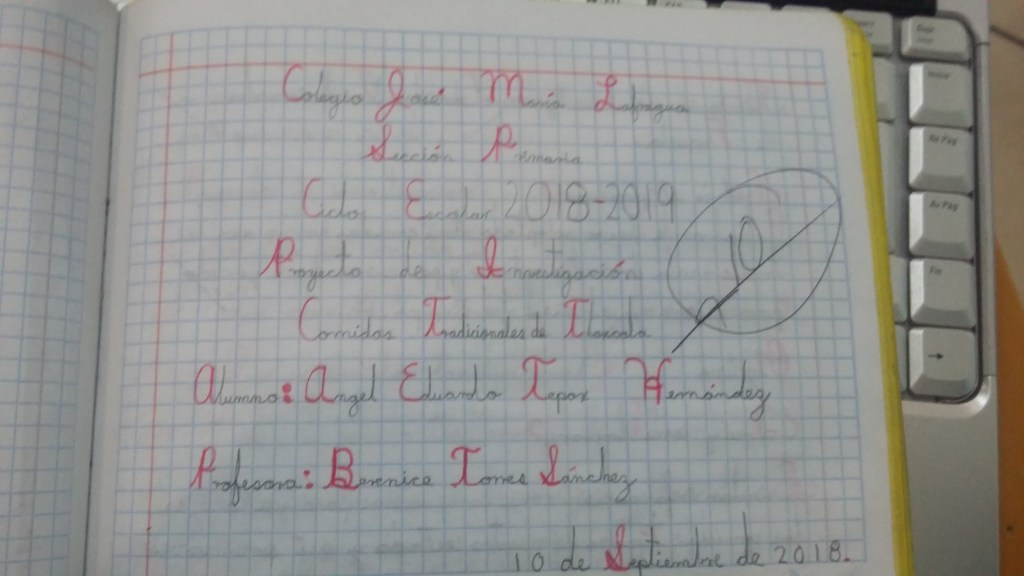 Colegio José María Lafragua
Sección Primaria
Ciclo Escolar 2018-2019
Proyecto de Investigación
10
Comidas Tradicionales de Tlaxcala
Alumno: Angel Eduardo Tepox Hernández
Profesora: Berenice Torres Sánchez
10 de Septiembre de 2018.